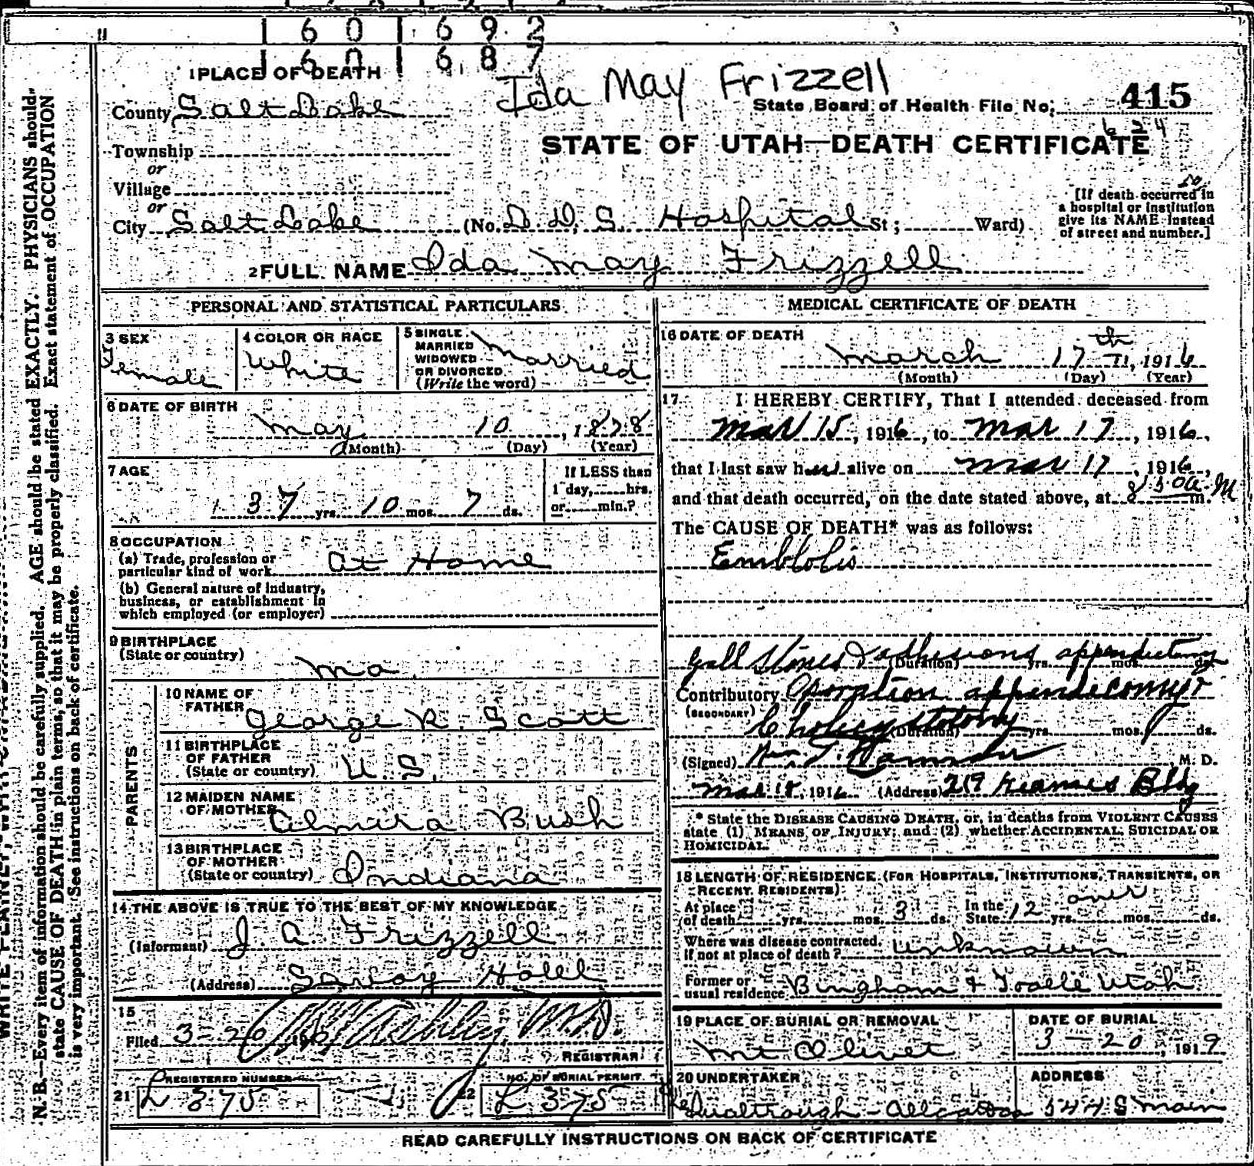 1 6 0 1 6 9 2
1 6 0 1 6 8 7
Ida May Frizzell
1 PLACE OF DEATH
County Salt Lake
State Board of Health File No. 415
624
Township
or
STATE OF UTAH—DEATH CERTIFICATE
Village
or
City Salt Lake (No. L. D. S. Hospital St; Ward)
[If death occurred in
a hospital or institution
give its NAME instead
of street and number.]
2 FULL NAME Ida May Frizzell
PERSONAL AND STATISTICAL PARTICULARS
3 SEX
Female
4 COLOR OR RACE
White
5 SINGLE
MARRIED
WIDOWED
OR DIVORCED
(Write the word)
Married
6 DATE OF BIRTH
May 10, 1878
(Month) (Day) (Year)
7 AGE
37 yrs. 10 mos. 7 ds.
If LESS than
1 day, hrs.
or min.?
8 OCCUPATION
(a) Trade, profession or
particular kind of work At Home
(b) General nature of industry,
business, or establishment in
which employed (or employer)
9 BIRTHPLACE
(State or country)
Mo
PARENTS
10 NAME OF
FATHER George R. Scott
11 BIRTHPLACE
OF FATHER
(State or country) U. S.
12 MAIDEN NAME
OF MOTHER Elmira Bush
13 BIRTHPLACE
OF MOTHER
(State or country) Indiana
14 THE ABOVE IS TRUE TO THE BEST OF MY KNOWLEDGE
(Informant) J A Frizzell
(Address) Savoy Hotel
15
Filed 3-26 1916 Ashley M.D.
REGISTRAR
21 REGISTERED NUMBER
L 375
22 NO. OF BURIAL PERMIT
L 375
MEDICAL CERTIFICATE OF DEATH
16 DATE OF DEATH
March 17th, 1916
(Month) (Day) (Year)
17 I HEREBY CERTIFY, That I attended deceased from
Mar 15, 1916, to Mar 17, 1916,
that I last saw her alive on Mar 17, 1916,
and that death occurred, on the date stated above, at 8 50 a m. M
The CAUSE OF DEATH* was as follows:
Emblolis
Gall Stones & adhesions
(Duration) yrs. mos. ds.
Contributory Operation
(SECONDARY)
(Duration) yrs. mos. ds.
(Signed) Wm. T. M. D.
Mar 18, 1916 (Address) 219 Kearns Bldg
* State the DISEASE CAUSING DEATH, or, in deaths from VIOLENT CAUSES
state (1) MEANS OF INJURY; and (2) whether ACCIDENTAL, SUICIDAL OR
HOMICIDAL.
18 LENGTH OF RESIDENCE (FOR HOSPITALS, INSTITUTIONS, TRANSIENTS, OR
RECENT RESIDENTS)
At place
of death yrs. mos. 3 ds.
In the
State 12 yrs. over mos. ds.
Where was disease contracted,
if not at place of death? unknown
Former or
usual residence Bingham & Tooele Utah
19 PLACE OF BURIAL OR REMOVAL
Mt Olivet
DATE OF BURIAL
3-20, 1919
20 UNDERTAKER
ADDRESS
544 S Main
READ CAREFULLY INSTRUCTIONS ON BACK OF CERTIFICATE
N. B.—Every item of information should be carefully supplied. AGE should be stated EXACTLY. PHYSICIANS should
state CAUSE OF DEATH in plain terms, so that it may be properly classified. Exact statement of OCCUPATION
is very important. See instructions on back of certificate.